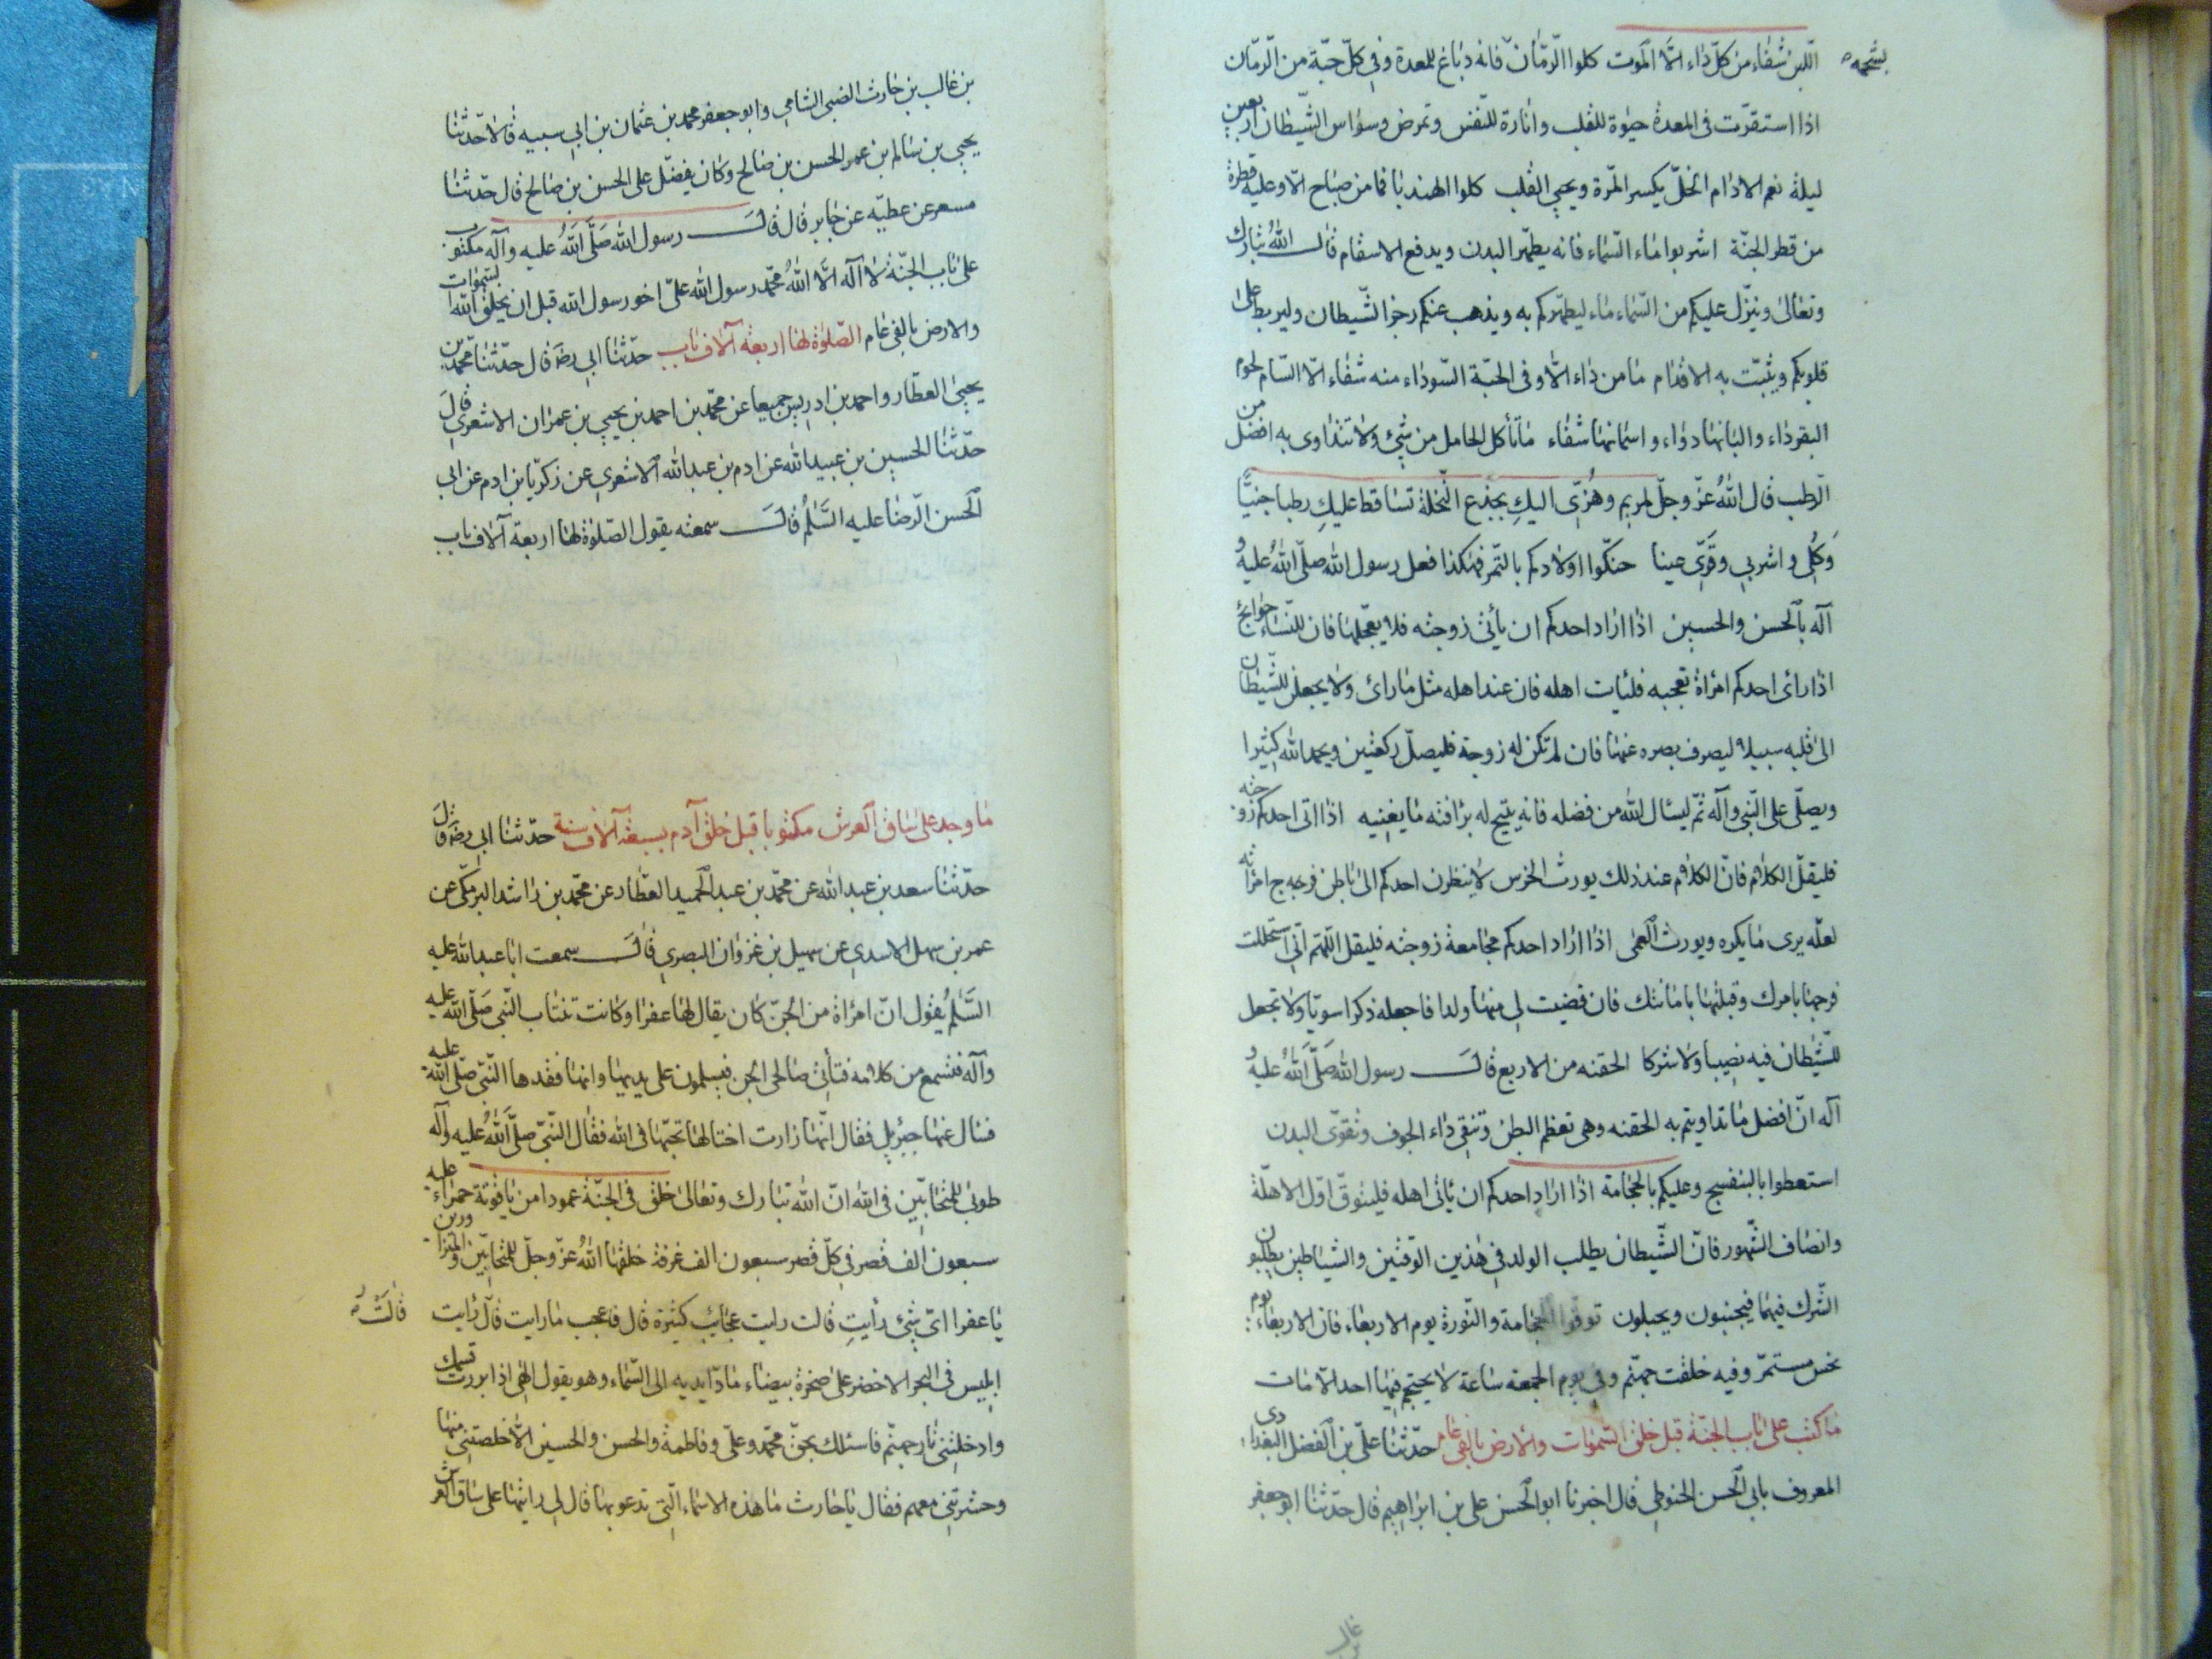 اللبن شفاء من كلّ داء الّا الموت كلوا الرّمّان فانه دباغ للمعدة وفى كلّ حبّة من الرّمّان
بشحمه
اذا استقرّت فى المعدة حيوة للقلب وانارة للنّفس وتمرض وسواس الشّيطان اربعين
ليلة نعم الادام الخلّ يكسر المرّة ويحيى القلب كلوا الهندبا فما من صباح الّا وعليه قطرة
من قطر الجنّة اشربوا ماء السّماء فانه يطهّر البدن ويدفع الاسقام قال الله تبارك
وتعالى وينزّل عليكم من السّماء ماء ليطهّركم به ويذهب عنكم رجز الشّيطان وليربط على
قلوبكم ويثبّت به الاقدام ما من داء الّا وفى الحبّة السّوداء منه شفاء الّا السّام لحوم
البقر داء والبانها دواء واسمانها شفاء ما تأكل الحامل من شئ ولا تتداوى به افضل من
الرّطب قال الله عزّ وجلّ لمريم وهُزّى اليكِ بجذع النّخلة تساقط عليكِ رطبا جنيّا
وَكُلِى واشربى وقَرّى عينا حنّكوا اولادكم بالتّمر فهكذا فعل رسول الله صلّى الله عليه و
آله بالحسن والحسين اذا اراد احدكم ان يأتى زوجته فلا يعجّلها فان للنّساء حوائج
اذا رائ احدكم امرأة تعجبه فليات اهله فان عند اهله مثل ما رائ ولا يجعلن للشّيطان
الى قلبه سبيلا ليصرف بصره عنها فان لم تكن له زوجة فليصلّ ركعتين ويحمد الله كثيرا
ويصلّى على النّبى وآله ثمّ ليسئال الله من فضله فانه يتيح له برافته ما يغنيه اذا اتى احدكم زوجته
فليقلّ الكلام فانّ الكلام عند ذلك يورث الخرس لا ينظرن احدكم الى باطن فرج امراته
لعلّه يرى ما يكره ويورث العمى اذا اراد احدكم مجامعة زوجته فليقل اللّهمّ انّى استحللت
فرجها بامرك وقبلتها بامانتك فان قضيت لى منها ولدا فاجعله ذكرا سويّا ولا تجعل
للشّيطان فيه نصيبا ولا شركا الحقنه من الاربع قال رسول الله صلّى الله عليه و
آله انّ افضل ما تداويتم به الحقنه وهى تعظم البطن وتنقى داء الجوف وتقوّى البدن
استعطوا بالبنفسج وعليكم بالحجامة اذا اراد احدكم ان يأتى اهله فليتوقّ اوّل الاهلّة
وانصاف الشّهور فانّ الشّيطان يطلب الولد فى هذين الوقتين والشياطين يطلبون
الشّرك فيهما فيجئبون ويحبلون توقّوا الحجامة والنّورة يوم الاربعاء فان الاربعاء يوم
نحس مستمرّ وفيه خلقت جهنّم وفى يوم الجمعة ساعة لا يحتجم فيها احد الّا مات
ما كتب على باب الجنّة قبل خلق السّموات والارض بالفى عام حدّثنا علىّ بن الفضل البغدادى
المعروف بابى الحسن الحنوطى قال اخبرنا ابو الحسن على بن ابراهيم قال حدّثنا ابو جعفر
بن غالب بن حارث الضبى الشامى وابو جعفر محمد بن عثمان بن ابى سبيه قالا حدّثنا
يحيى بن سالم بن عمر الحسن بن صالح وكان يفضّل على الحسن بن صالح قال حدّثنا
مسعر عن عطيّه عن جابر قال قال رسول الله صَلَّى اللهُ عليه وآله مكتوب
على باب الجنّة لا اله الّا الله محمّد رسول الله علىّ اخو رسول الله قبل ان يخلق الله السّموات
والارض بالفى عام الصّلوة لها اربعة آلاف باب حدّثنا ابى رضَه قال حدّثنا محمّد بن
يحيى العطّار واحمد بن ادريس جميعا عن محمّد بن احمد بن يحيى بن عمران الاشعرى قال
حدّثنا الحسين بن عبيد الله عن ادم بن عبد الله الاشعرى عن زكريّا بن ادم عن ابى
الحسن الرّضا عليه السَّلمُ قال سمعته يقول الصّلوة لها اربعة آلاف باب
ما وجد على ساق العرش مكتوبا قبل خلق آدم بسبعة آلاف سنة حدّثنا ابى رضَه قال
حدّثنا سعد بن عبد الله عن محمّد بن عبد الحميد العطّار عن محمّد بن راشد البرمكى عن
عمر بن سهل الاسدى عن سهيل بن غزوان البصرى قال سمعت ابا عبد الله عليه
السَّلمُ يقول انّ امراة من الجنّ كان يقال لها عفرا وكانت تنتاب النّبى صَلّى الله عليه
وآله فتسمع من كلامه فتأتى صالحى الجن فيسلمون على يديها وانها فقدها النّبى صلّى الله عليه
فسال عنها جبرئيل فقال انّها زارت اختا لها تحبّها فى الله فقال النّبىّ صلّى الله عليه وآله
طوبى للمتحابّين فى الله انّ الله تبارك وتعالى خلق فى الجنّة عمودا من ياقوتة حمراء عليه
سبعون الف قصر فى كلّ قصر سبعون الف غرفة خلقها الله عزّ وجلّ للمتحابّين والمتزاورين
يا عفرا اىّ شئ رأيتِ قالت رايت عجائب كثيرة قال فاعجب ما رايت قال رايت
قالَتْ
ابليس فى البحر الاخضر على صخرة بيضاء مادّا يديه الى السّماء وهو يقول الهى اذا ابررت قسمك
وادخلتنى نار جهنّم فاسئلك بحقّ محمّد وعلىّ وفاطمة والحسن والحسين الّا خلصتنى منها
وحشرتنى معهم فقال يا حارث ما هذه الاسماء الّتى تدعو بها قال لى رايتها على ساق العرش